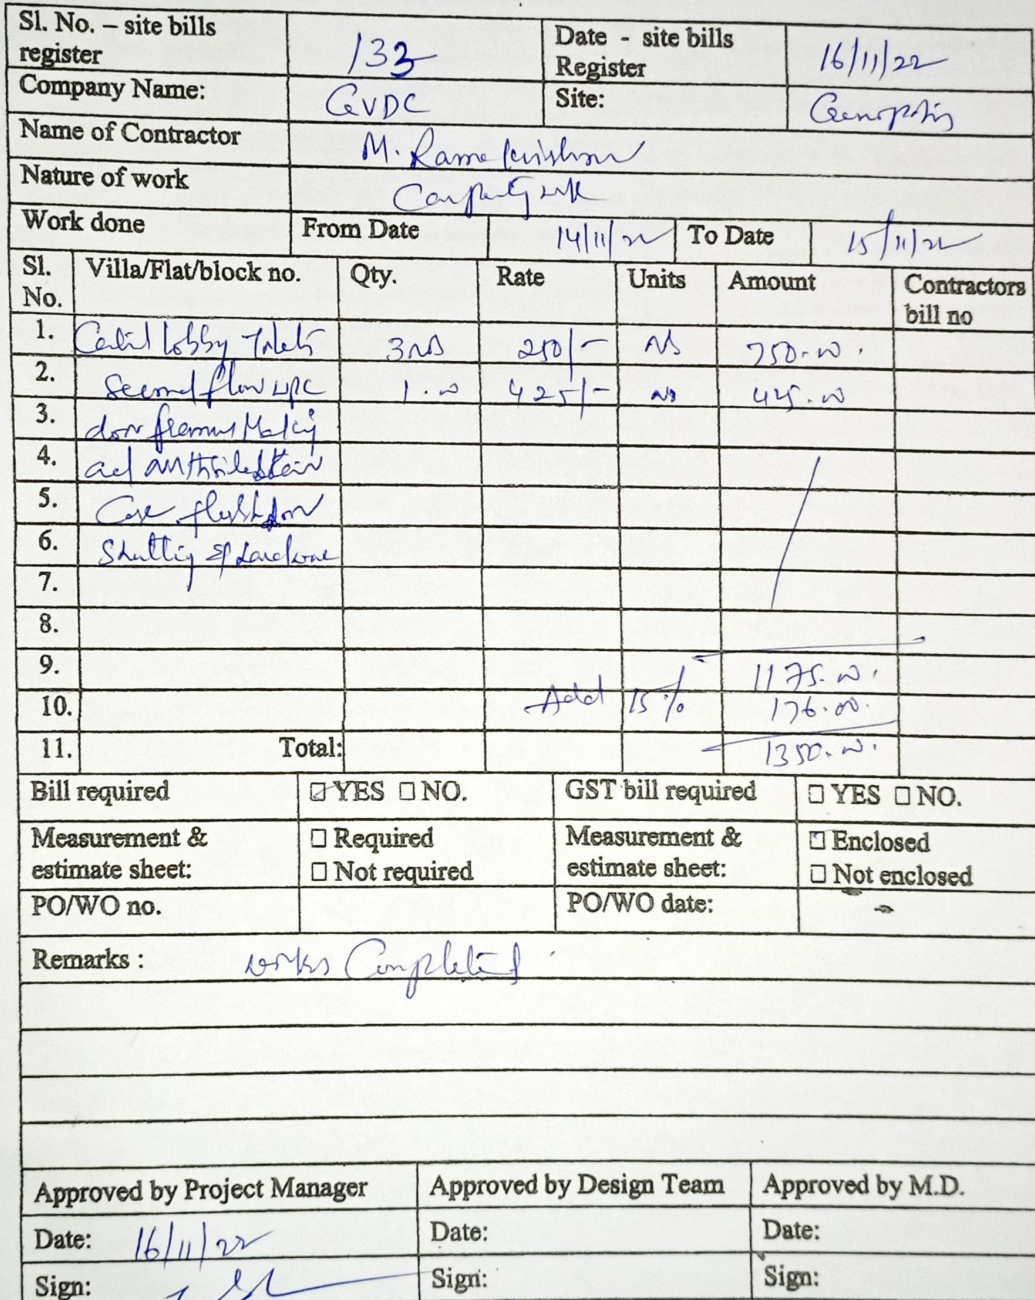 Sl. No. – site bills register 133 Date - site bills Register 16/11/22
Company Name: GVDC Site: Genopolis
Name of Contractor M. Rama krishna
Nature of work
Work done From Date 14/11/22 To Date 15/11/22
Sl. No. Villa/Flat/block no. Qty. Rate Units Amount Contractors bill no
1. lobby Toilets 3 NS 250/- NS 750.00.
2. Second floor 1.00 425/- NS
3. door
4.
5. flush door
6.
7.
8.
9. 1175.00.
10. Add 15% 176.00.
11. Total: 1350.00.
Bill required ☑ YES ☐ NO. GST bill required ☐ YES ☐ NO.
Measurement & estimate sheet: ☐ Required ☐ Not required Measurement & estimate sheet: ☑ Enclosed ☐ Not enclosed
PO/WO no. PO/WO date: -
Remarks : works Completed
Approved by Project Manager Approved by Design Team Approved by M.D.
Date: 16/11/22 Date: Date:
Sign: Sign: Sign: